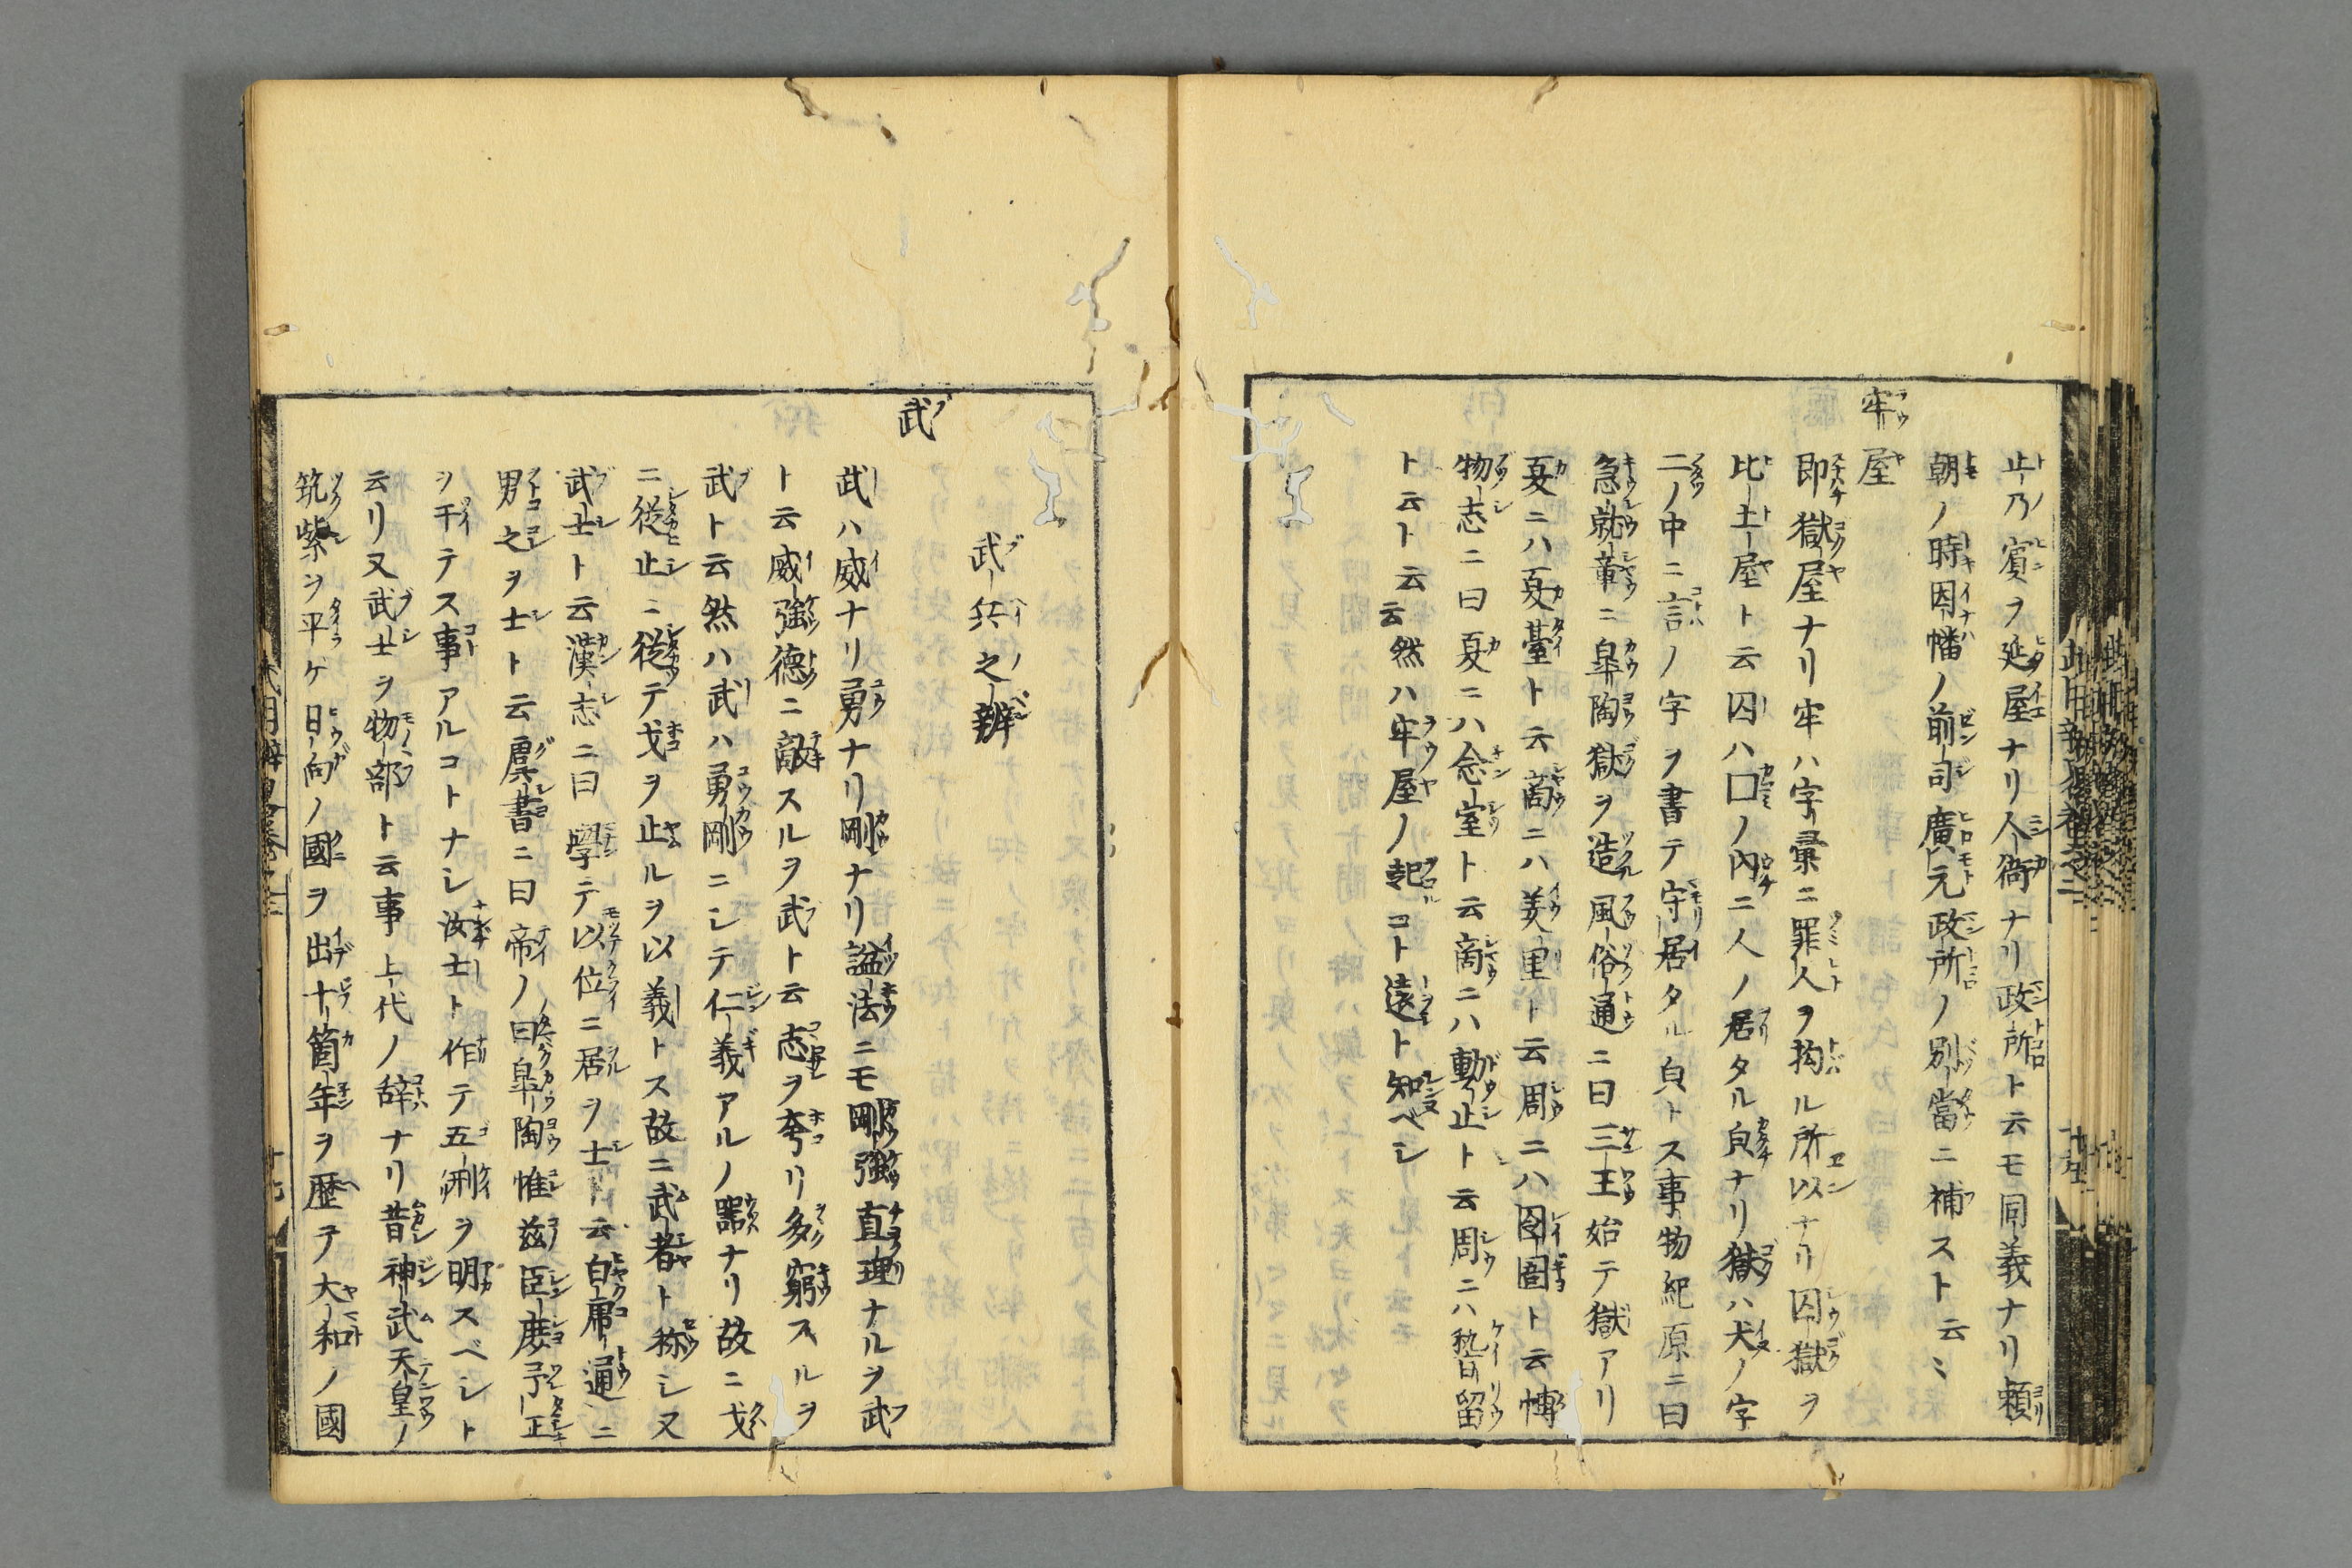 止乃賔ヲ延屋ナリ人衙ナリ政所ト云モ同義ナリ頼
朝ノ時因幡ノ前司廣元政所ノ別當ニ補スト云ミ
牢屋
即獄屋ナリ牢ハ字彙ニ罪人ヲ拘ル所以ナリ囚獄ヲ
比土屋ト云囚ハ囗ノ内ニ人ノ居タル㒵ナリ獄ハ犬ノ字
二ノ中ニ言ノ字ヲ書テ守居タル㒵トス事物紀原ニ曰
急就章ニ皐陶獄ヲ造風俗通ニ曰三王始テ獄アリ
夏ニハ夏臺ト云啇ニハ羑里ト云周ニハ囹圄ト云博
物志ニ曰夏ニハ念室ト云啇ニハ動止ト云周ニハ稽留
ト云ト云云然ハ牢屋ノ起コト遠ト知ベシ
武兵之辨
武
武ハ威ナリ勇ナリ剛ナリ謚法ニモ剛強直理ナルヲ武
ト云威強德ニ敵スルヲ武ト云志ヲ夸リ多窮スルヲ
武ト云然ハ武ハ勇剛ニシテ仁義アルノ器ナリ故ニ戈
ニ從止ニ從テ戈ヲ止ルヲ以義トス故ニ武者ト称シ又
武士ト云漢志ニ曰學テ以位ニ居ヲ士ト云白虎通ニ
男之ヲ士ト云虞書ニ曰帝ノ曰皐陶惟茲臣庶予正
ヲ干テス事アルコトナシ汝士ト作テ五刑ヲ明スベシト
云リ又武士ヲ物部ト云事上代ノ辞ナリ昔神武天皇ノ
筑紫ヲ平ケ日向ノ國ヲ出十箇年ヲ歴テ大和ノ國